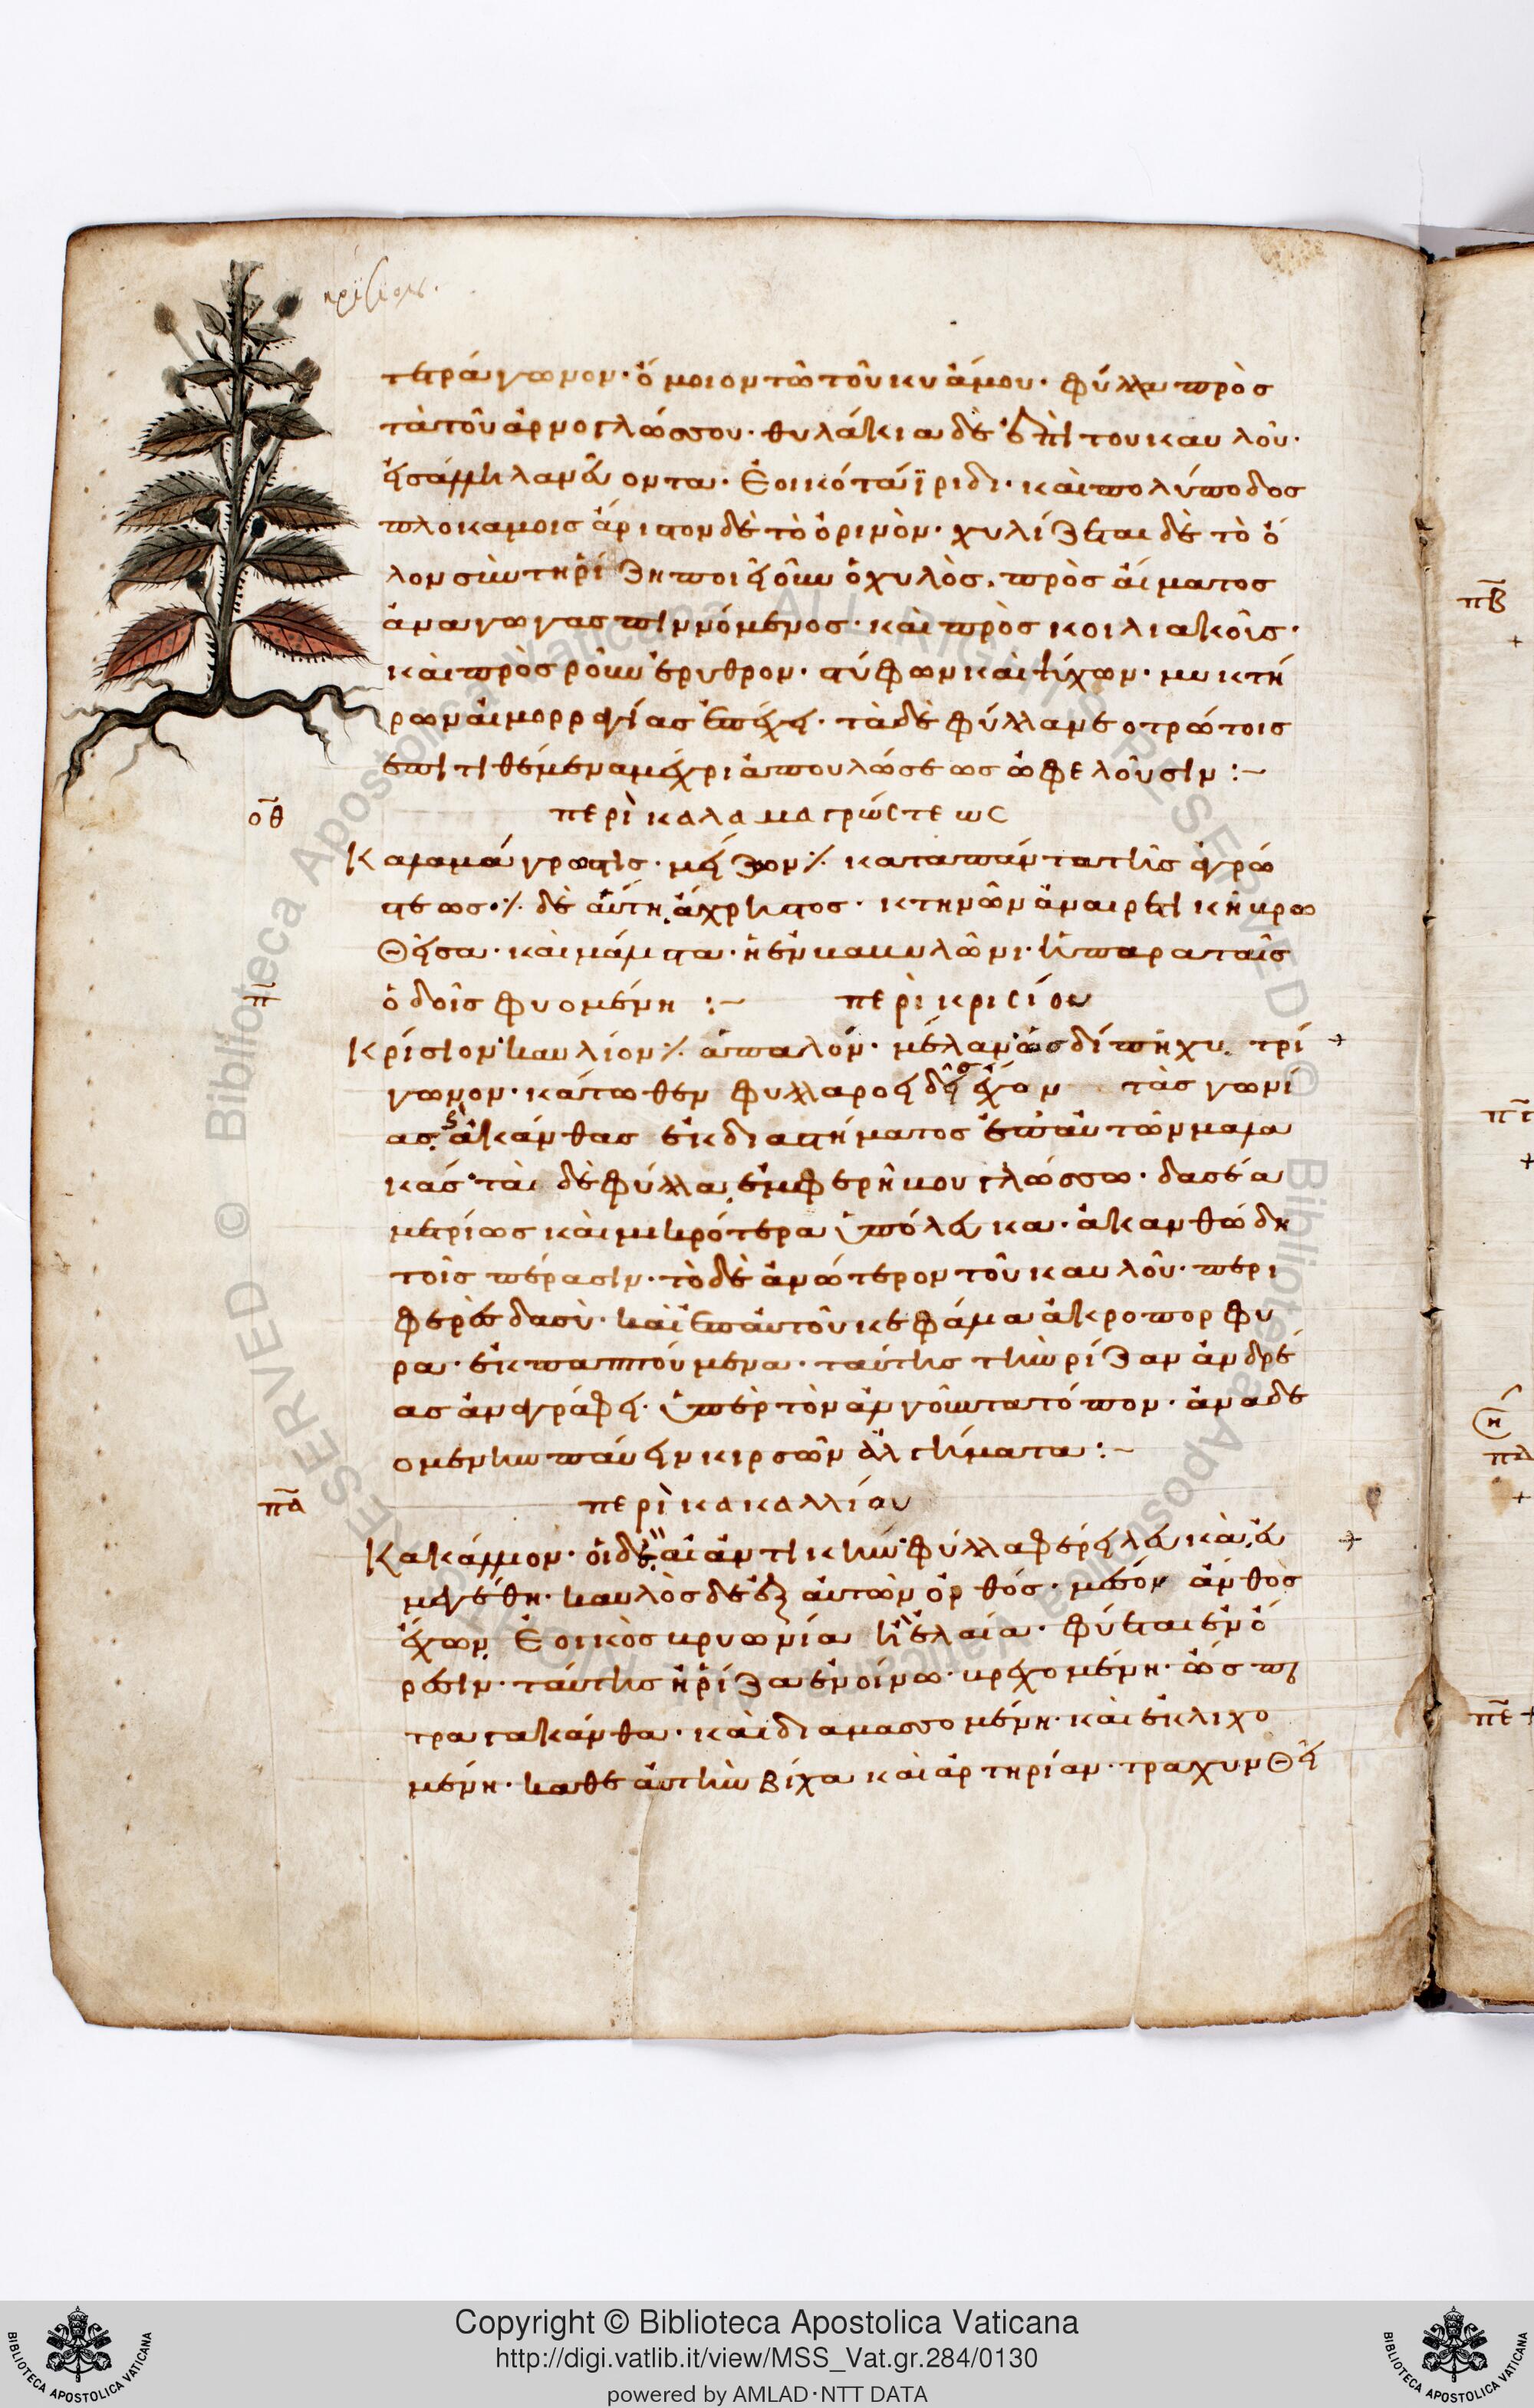 κρίσιον.
τετράγωνον· ὅμοιον τῶ τοῦ κυάμου· φύλλα πρὸς
τὰ τοῦ ἀρνογλώσσου· θυλάκια δὲ ἐπὶ τοῦ καυλοῦ·
λοντα· ἐοικότα ἴριδι· καὶ πολύποδος
πλοκάμοις ἄριστον δὲ τὸ ὀρινὸν· χυλίζεται δὲ τὸ ὅ
λον σὺν τῆ ρίζη ποιεῖ οὖν ὁ χυλὸς, πρὸς αἵματος
ἀναγωγας πινόμενος· καὶ πρὸς κοιλιακοῖς·
καὶ πρὸς ροῦν ἐρυθρον· στύφων καὶ ψύχων· μυκτή
ρων αἱμορραγίας ἐπέχει· τὰ δὲ φύλλα νεοτρώτοις
ἐπιτιθέμενα μέχρι ἀπουλώσεως ὠφελοῦσιν :~
ο̅θ̅
περὶ καλαμαγρώστεως
Καλαμάγρωστις· μείζων ⁒ κατὰ πάντα τῆς ἀγρώ
στεως· ⁒ δὲ αὕτη ἄχρηστος· κτηνῶν ἀναιρετικὴ βρω
θεῖσα· καὶ μάλιστα· ἡ ἐν βαβυλῶνι· ἡ παρὰ ταῖς
π̅
ὁδοῖς φυομένη :~ περὶ κρισίου
Κρίσιον καυλίον ⁒ ἁπαλόν· μέλαν ὡς δίπηχυ, τρί
γωνον· κάτωθεν φυλλα ροειδῆ ἔχον τὰς γωνί
ας, ἀκάνθας ἐκ διαστήματος ἐπ' αὐτῶν μαλα
κάς· τὰ δὲ φύλλα, ἐμφερῆ βουγλώσσω· δασέα
μετρίως καὶ μικρότερα ὑπόλευκα· ἀκανθώδη
τοῖς πέρασιν· τὸ δὲ ἀνώτερον τοῦ καυλοῦ· περι
φερὲς δασὺ· καὶ ἐπ' αὐτοῦ κεφάλια ἀκροπορφυ
ρα· ἐκπαππούμενα· ταύτης τὴν ρίζαν ἀνδρέ
ας ἀναγράφει· ὑπὲρ τὸν ἀλγοῦντα τόπον· ἀναδε
ομένην παύειν κιρσῶν ἀλγήματα :~
π̅α̅
περὶ κακαλλίου
Κακάλλιον· οἱ δὲ αἰαντικὴν φύλλα φέρει λευκὰ, εὐ
μεγέθη· καυλὸς δὲ ἐξ αὐτῶν ὀρθός· μέσον ἄνθος
ἔχων, ἐοικὸς βρυωνία ἢ ἐλαία· φύεται ἐν ὄ
ρεσιν· ταύτης ἡ ρίζα ἐν οἴνω· βρεχομένη· ὡς
τραγακάνθα· καὶ διαμασσομένη· καὶ ἐκλιχο
μένη· καθ' ἑαυτὴν βῆχα καὶ ἀρτηρίαν· τραχυνθεῖ
π̅β̅
Copyright © Biblioteca Apostolica Vaticana
http://digi.vatlib.it/view/MSS_Vat.gr.284/0130
powered by AMLAD·NTT DATA
BIBLIOTECA APOSTOLICA VATICANA
BIBLIOTECA APOSTOLICA VATICANA